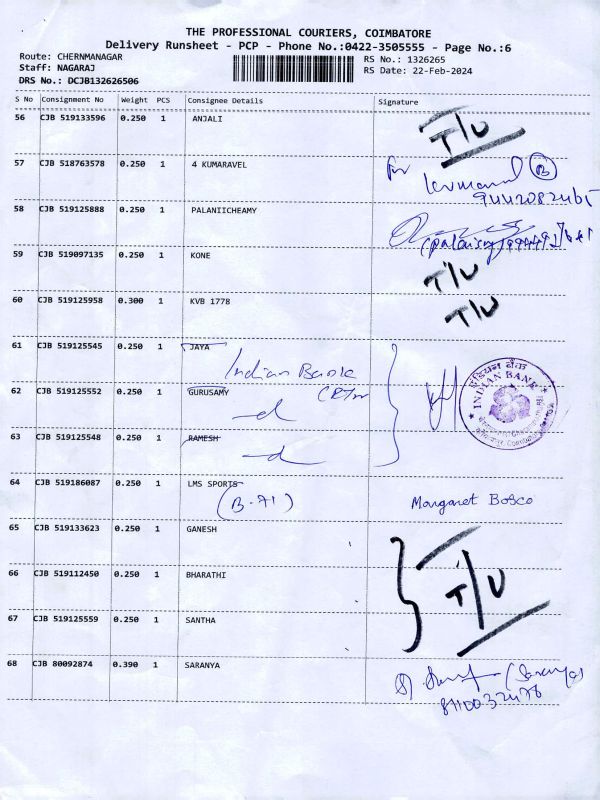 THE PROFESSIONAL COURIERS, COIMBATORE
Delivery Runsheet - PCP - Phone No.:0422-3505555 - Page No.:6
Route: CHERNMANAGAR
Staff: NAGARAJ
DRS No.: DCJB132626506
RS No.: 1326265
RS Date: 22-Feb-2024
S No Consignment No Weight PCS Consignee Details Signature
56 CJB 519133596 0.250 1 ANJALI T/U
57 CJB 518763578 0.250 1 4 KUMARAVEL for
58 CJB 519125888 0.250 1 PALANIICHEAMY
59 CJB 519097135 0.250 1 KONE T/U
60 CJB 519125958 0.300 1 KVB 1778 T/U
61 CJB 519125545 0.250 1 JAYA
Indian Bank
इंडियन बैंक
INDIAN BANK
62 CJB 519125552 0.250 1 GURUSAMY
63 CJB 519125548 0.250 1 RAMESH
64 CJB 519186087 0.250 1 LMS SPORTS
(B-71) Margaret Bosco
65 CJB 519133623 0.250 1 GANESH
66 CJB 519112450 0.250 1 BHARATHI T/U
67 CJB 519125559 0.250 1 SANTHA
68 CJB 80092874 0.390 1 SARANYA
(Saranya)